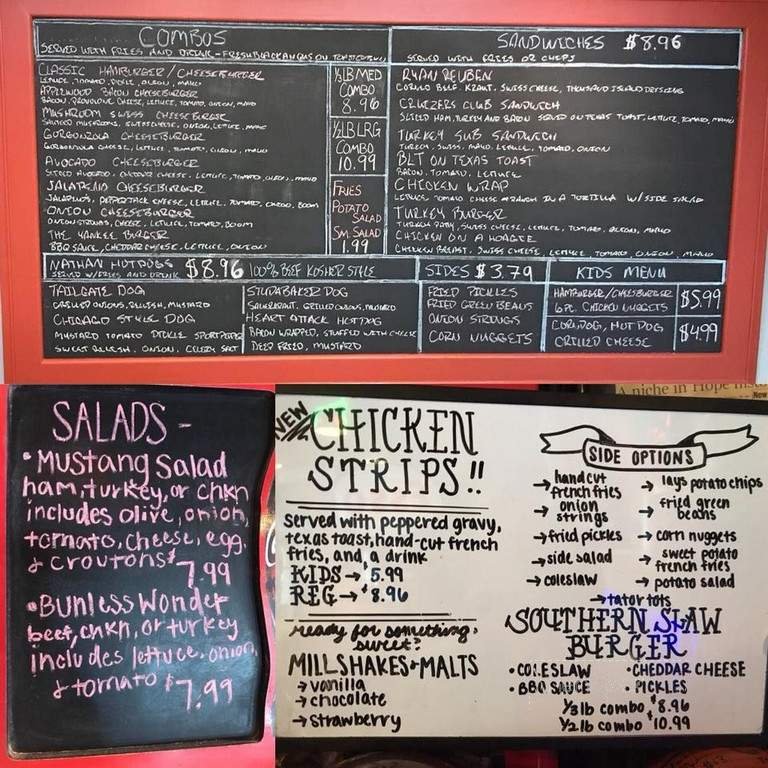 COMBOS
SERVED WITH FRIES AND DRINK - FRESH BLACK ANGUS ON
CLASSIC HAMBURGER / CHEESEBURGER
LETTUCE, TOMATO, PICKLE, ONION, MAYO
APPLEWOOD BACON CHEESEBURGER
BACON, PROVOLONE CHEESE, LETTUCE, TOMATO, ONION, MAYO
MUSHROOM SWISS CHEESE BURGER
SAUTEED MUSHROOMS, SWISS CHEESE, ONION, LETTUCE, MAYO
GORGONZOLA CHEESEBURGER
GORGONZOLA CHEESE, LETTUCE, TOMATO, ONION, MAYO
AVOCADO CHEESEBURGER
SLICED AVOCADO, CHEDDAR CHEESE, LETTUCE, TOMATO, ONION, MAYO
JALAPENO CHEESEBURGER
JALAPENOS, PEPPERJACK CHEESE, LETTUCE, TOMATO, ONION, BOOM
ONION CHEESEBURGER
ONION STRINGS, CHEESE, LETTUCE, TOMATO, BOOM
THE YANKEE BURGER
BBQ SAUCE, CHEDDAR CHEESE, LETTUCE, ONION
⅓LB MED
COMBO
8.96
½LB LRG
COMBO
10.99
FRIES
POTATO
SALAD
SM. SALAD
1.99
SANDWICHES $8.96
SERVED WITH FRIES OR CHIPS
RYAN REUBEN
CORNED BEEF, KRAUT, SWISS CHEESE, THOUSAND ISLAND DRESSING
CRUIZERS CLUB SANDWICH
SLICED HAM, TURKEY AND BACON SERVED ON TEXAS TOAST, LETTUCE, TOMATO, MAYO
TURKEY SUB SANDWICH
TURKEY, SWISS, MAYO, LETTUCE, TOMATO, ONION
BLT ON TEXAS TOAST
BACON, TOMATO, LETTUCE
CHICKEN WRAP
LETTUCE TOMATO CHEESE RANCH IN A TORTILLA W/ SIDE SALAD
TURKEY BURGER
TURKEY PATTY, SWISS CHEESE, LETTUCE, TOMATO, ONIONS, MAYO
CHICKEN ON A HOAGIE
CHICKEN BREAST, SWISS CHEESE, LETTUCE, TOMATO, ONION, MAYO
NATHAN HOTDOGS $8.96 100% BEEF KOSHER STYLE
SERVED W/FRIES AND DRINK
TAILGATE DOG
GRILLED ONIONS, RELISH, MUSTARD
CHICAGO STYLE DOG
MUSTARD TOMATO PICKLE SPORT PEPPER
SWEET RELISH, ONION, CELERY SALT
STUDABAKER DOG
SAUERKRAUT, GRILLED ONIONS, MUSTARD
HEART ATTACK HOTDOG
BACON WRAPPED, STUFFED WITH CHEESE
DEEP FRIED, MUSTARD
SIDES $3.79
FRIED PICKLES
FRIED GREEN BEANS
ONION STRINGS
CORN NUGGETS
KIDS MENU
HAMBURGER/CHEESEBURGER
6 PC. CHICKEN NUGGETS
$5.99
CORNDOG, HOT DOG
GRILLED CHEESE
$4.99
SALADS -
• Mustang Salad
ham, turkey, or chkn
includes olive, onion,
tomato, cheese, egg,
& croutons $7.99
• Bunless Wonder
beef, chkn, or turkey
includes lettuce, onion,
& tomato $7.99
A niche in Hope
NEW
CHICKEN
STRIPS!!
served with peppered gravy,
texas toast, hand-cut french
fries, and a drink
KIDS → $5.99
REG → $8.96
ready for something
sweet?
MILLSHAKES + MALTS
→ vanilla
→ chocolate
→ strawberry
SIDE OPTIONS
→ handcut
french fries
→ onion
strings
→ fried pickles
→ side salad
→ coleslaw
→ lays potato chips
→ fried green
beans
→ corn nuggets
→ sweet potato
french fries
→ potato salad
→ tator tots
SOUTHERN SLAW
BURGER
• COLESLAW • CHEDDAR CHEESE
• BBQ SAUCE • PICKLES
⅓ lb combo $8.96
½ lb combo $10.99